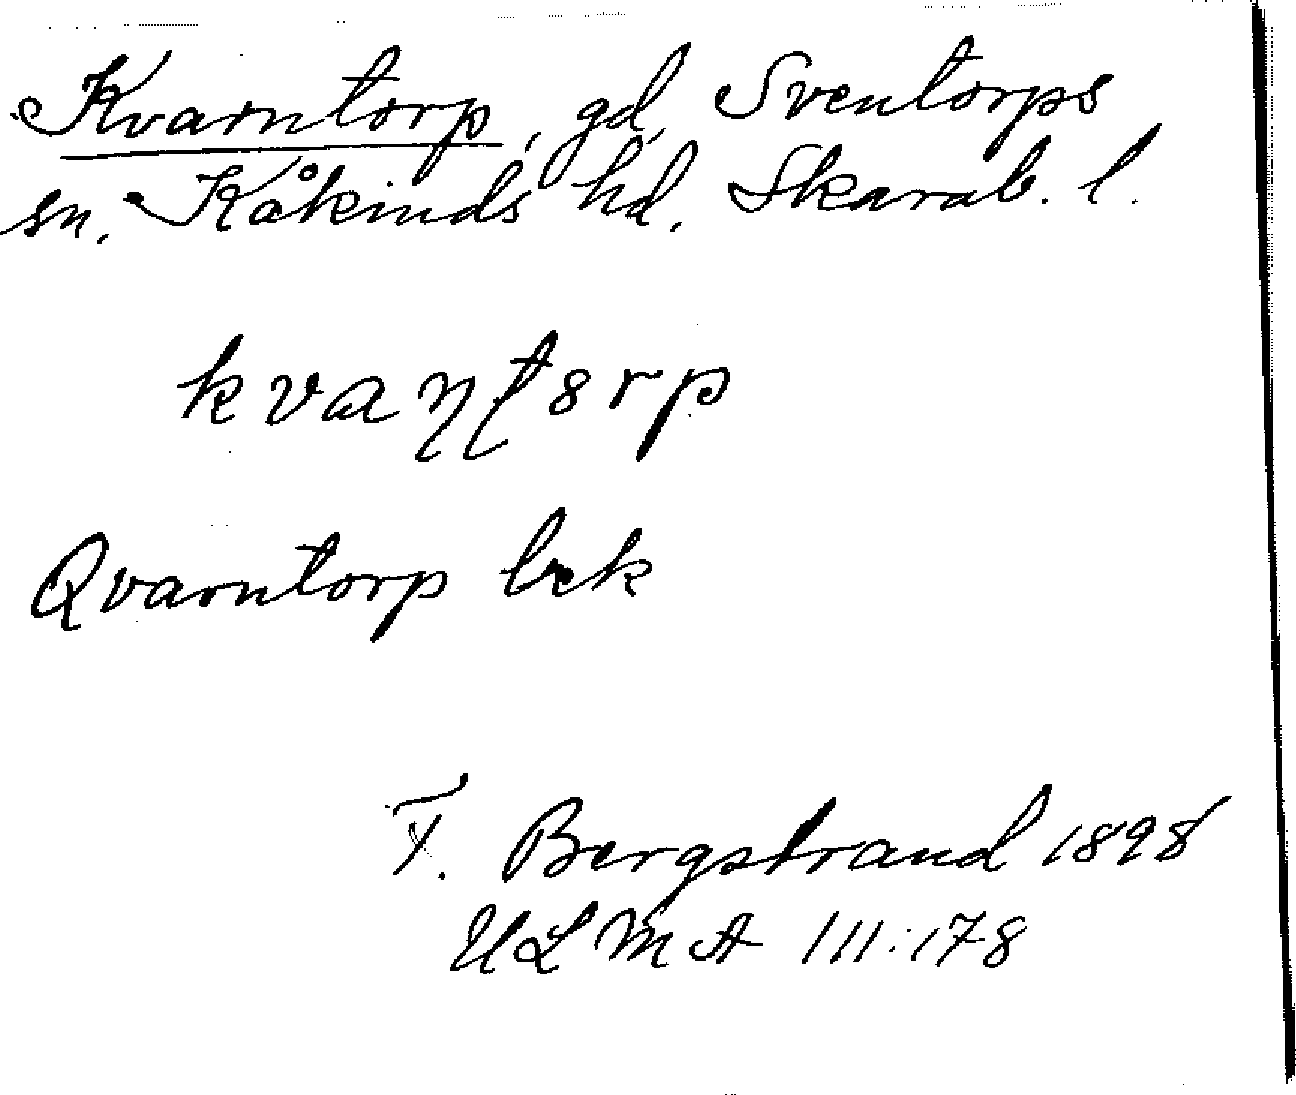 Kvarntorp, gd, Sventorps
sn. Kåkinds hd. Skarab. l.
kvaɳʈɞrp
Qvarntorp bek
F. Bergstrand 1898
ULMA 111:178